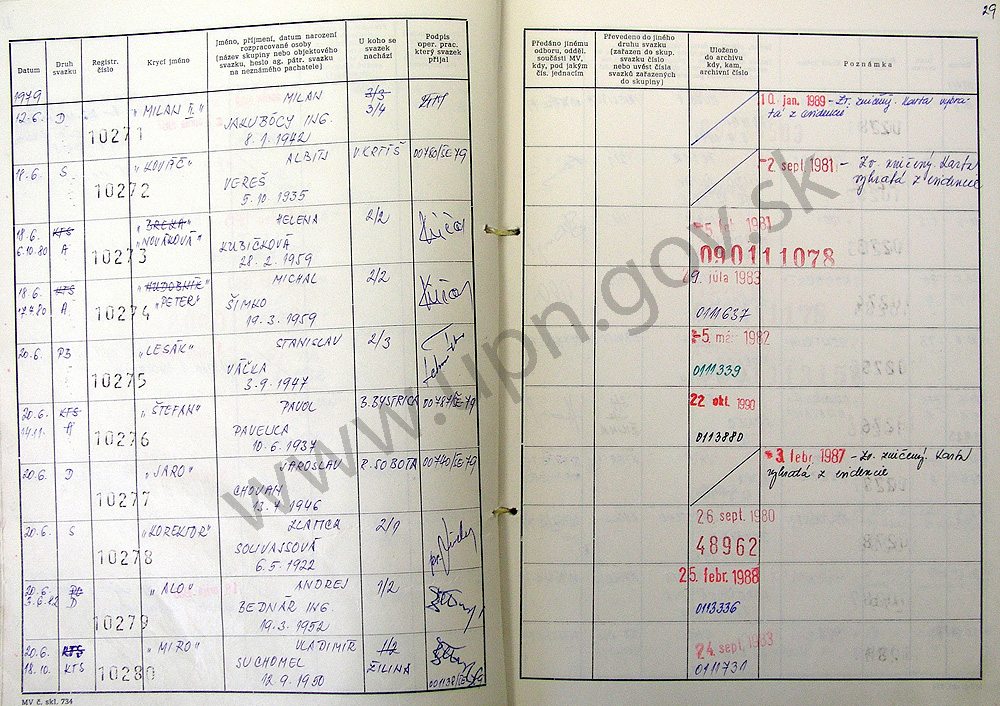 29
Datum
Druh svazku
Registr. číslo
Krycí jméno
Jméno, příjmení, datum narození
rozpracované osoby
(název skupiny nebo objektového
svazku, heslo ag. pátr. svazku
na neznámého pachatele)
U koho se
svazek
nachází
Podpis
oper. prac.
který svazek
přijal
Předáno jinému
odboru, odděl.
součásti MV,
kdy, pod jakým
čís. jednacím
Převedeno do jiného
druhu svazku
(zařazen do skup.
svazku číslo
nebo uvést čísla
svazků zařazených
do skupiny)
Uloženo
do archivu
kdy, kam,
archivní číslo
Poznámka
1979
12.6. D 10271 „MILAN MILAN 3/3
JAKUBÓCY ING. 3/4
8.1.1942
10. jan. 1989 - Zv. zničený. Karta vybra-
tá z evidencie
18.6. S 10272 „KOVÁČ" ALBÍN V.KRTÍŠ 00740/SE-79
VEREŠ
5.10 1935
2. sept. 1981 - Zv. zničený. Karta
vybratá z evidencie
18.6. KTS HELENA 2/2
6.10.80 A 10273 „NOVÁKOVÁ" KUBIČKOVÁ
28.2.1959
1981
090111078
18.6. KTS „HUDOBNÍK" MICHAL 2/2
17.7.80 A 10274 „PETER" ŠIMKO
19.3.1959
29. júla 1983
0111637
20.6. PB 10275 „LESÁK" STANISLAV 2/3
VÁČKA
3.9.1947
5. 1982
0111339
20.6. KTS „ŠTEFAN" PAVOL B.BYSTRICA 00787/SE-79
14.11. 10276 PAVELKA
10.6.1937
22. okt. 1990
0113880
20.6. D 10277 „JARO" JAROSLAV R.SOBOTA 00740/SE-79
CHOVAN
13.4.1946
3. febr. 1987 - Zv. zničený. Karta
vybratá z evidencie
20.6. S 10278 „KOREKTOR" ZLATICA 2/1
SOLIVAJSOVÁ
6.5.1922
26. sept. 1980
48962
20.6. „ALO" ANDREJ 1/2
D 10279 BEDNÁŘ ING.
19.3.1952
25. febr. 1988
0113336
20.6. KTS „MIRO" VLADIMÍR 1/2
18.10. KTS 10280 SUCHOMEL ŽILINA
12.9.1950
24. sept. 1983
0111731
MV č. skl. 734
www.upn.gov.sk